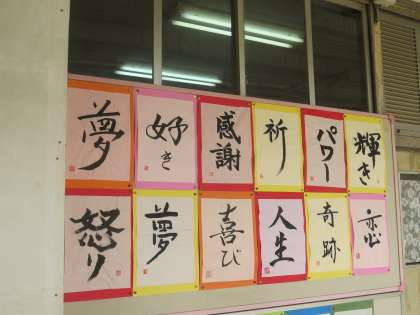 夢
好き
感謝
祈り
パワー
輝き
怒り
夢
喜び
人生
奇跡
恋